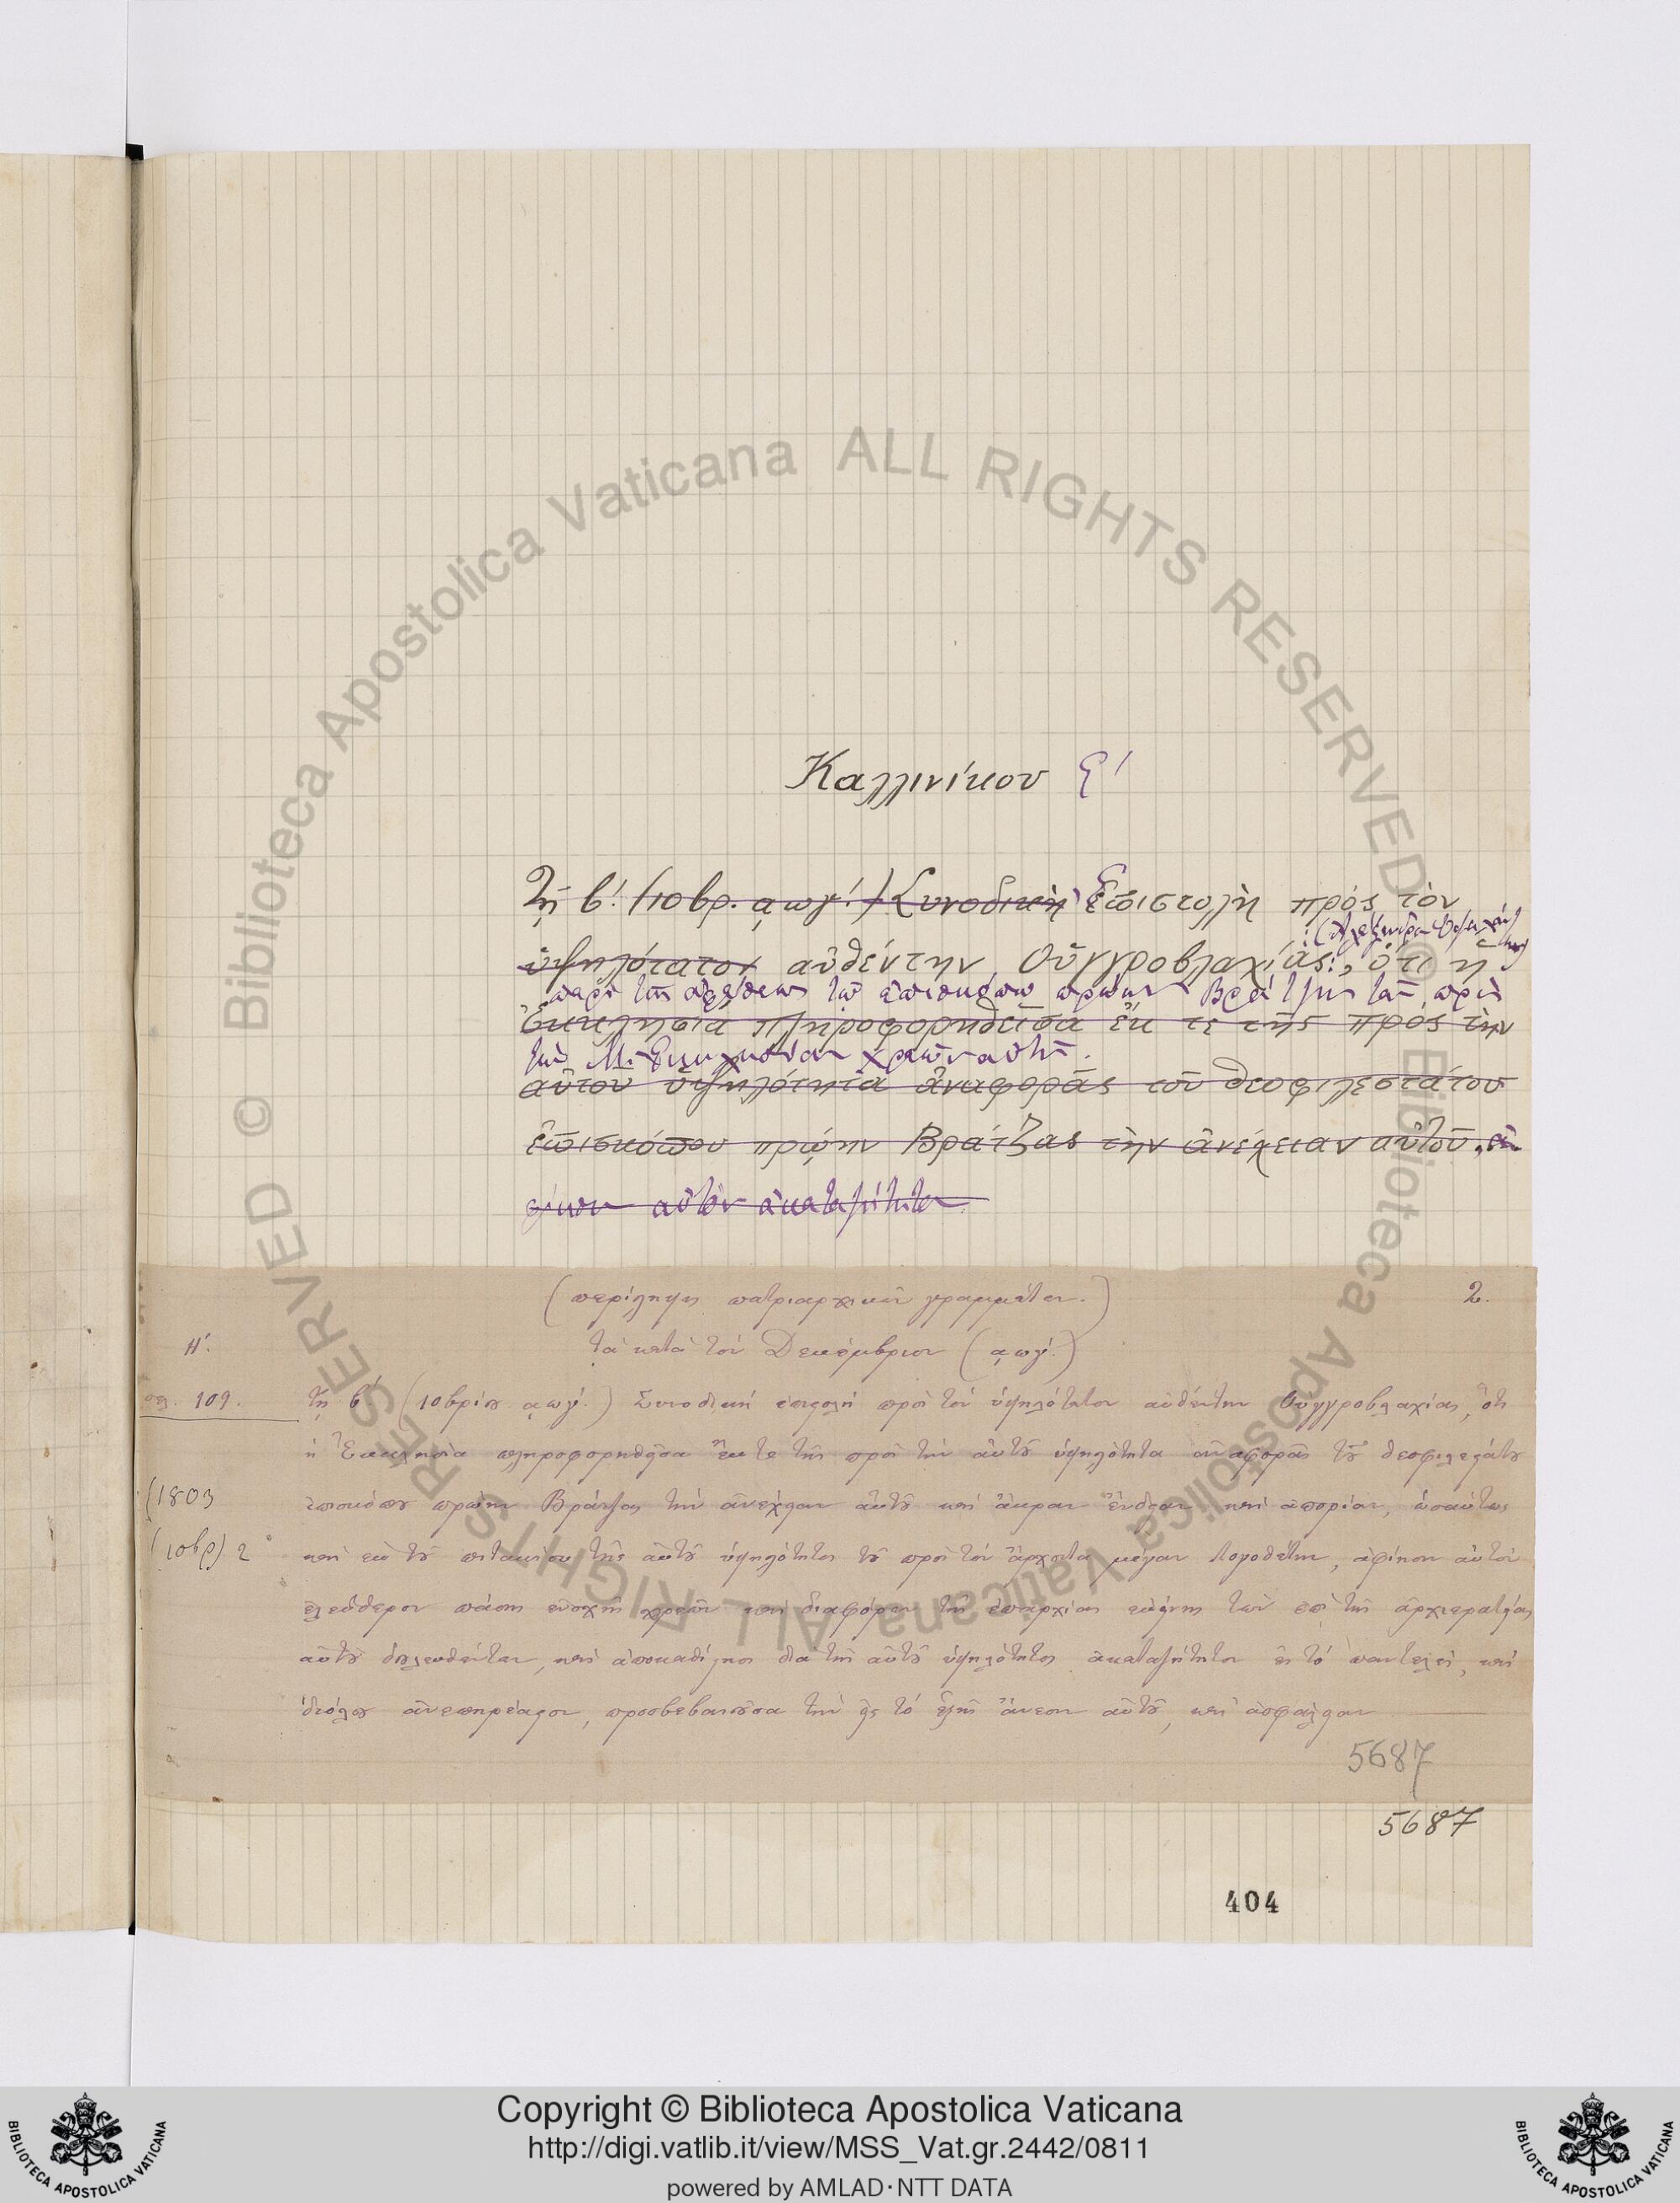 Καλλινίκου Ϛ'
Τῇ β! (10βρ. ͵αωγ'.) Συνοδικὴ Ἐπιστολὴ πρὸς τὸν
(Ἀλέξανδρον
ὑψηλότατον αὐθέντην Οὐγγροβλαχίας, ὅτι ἡ
περὶ τῆς τοῦ ἐπισκόπου πρώην Βράτζης τῶν πρὸς
Ἐκκλησία πληροφορηθεῖσα ἔκ τε τῆς πρὸς τὴν
τὴν Μ. Ἐκκλησίαν χρεῶν αὐτοῦ.
αὐτοῦ ὑψηλότητα ἀναφορᾶς τοῦ θεοφιλεστάτου
ἐπισκόπου πρώην Βράτζας τὴν ἀνέχειαν αὐτοῦ,
αὐτὸν ἀκαταζήτητον.
(περίληψις πατριαρχικῶν γραμμάτων.) 2.
Η'. τὰ κατὰ τὸν Δεκέμβριον (͵αωγ'.)
σελ. 109. τῇ β! (10βρίου ͵αωγ'.) Συνοδικὴ ἐπιστολὴ πρὸς τὸν ὑψηλότατον αὐθέντην Οὐγγροβλαχίας, ὅτι
ἡ Ἐκκλησία πληροφορηθεῖσα ἔκ τε τῆς πρὸς τὴν αὐτοῦ ὑψηλότητα ἀναφορᾶς τοῦ θεοφιλεστάτου
(1803 ἐπισκόπου πρώην Βράτζας τὴν ἀνέχειαν αὐτοῦ καὶ ἄκραν ἔνδειαν καὶ ἀπορίαν, ὡσαύτως
(10βρ) 2 καὶ ἐκ τοῦ πιτακίου τῆς αὐτοῦ ὑψηλότητος τοῦ πρὸς τὸν ἄρχοντα μέγαν Λογοθέτην, ἀφίησιν αὐτὸν
ἐλεύθερον πάσης ἐνοχῆς χρεῶν καὶ διαφόρων τῆς ἐπαρχίας ἐκείνης τῶν ἐπὶ τῆς ἀρχιερατείας
αὐτοῦ δουλευθέντων, καὶ ἀποκαθίστησι διὰ τῆς αὐτοῦ ὑψηλότητος ἀκαταζήτητον εἰς τὸ παντελές, καὶ
διόλου ἀνεπηρέαστον, προσβεβαιοῦσα τὴν εἰς τὸ ἑξῆς ἄνεσιν αὐτοῦ, καὶ ἀσφάλειαν
5687
5687
404
© Biblioteca Apostolica Vaticana ALL RIGHTS RESERVED
© Biblioteca Apostolica Vaticana ALL RIGHTS RESERVED
Copyright © Biblioteca Apostolica Vaticana
http://digi.vatlib.it/view/MSS_Vat.gr.2442/0811
powered by AMLAD·NTT DATA
BIBLIOTECA APOSTOLICA VATICANA
BIBLIOTECA APOSTOLICA VATICANA